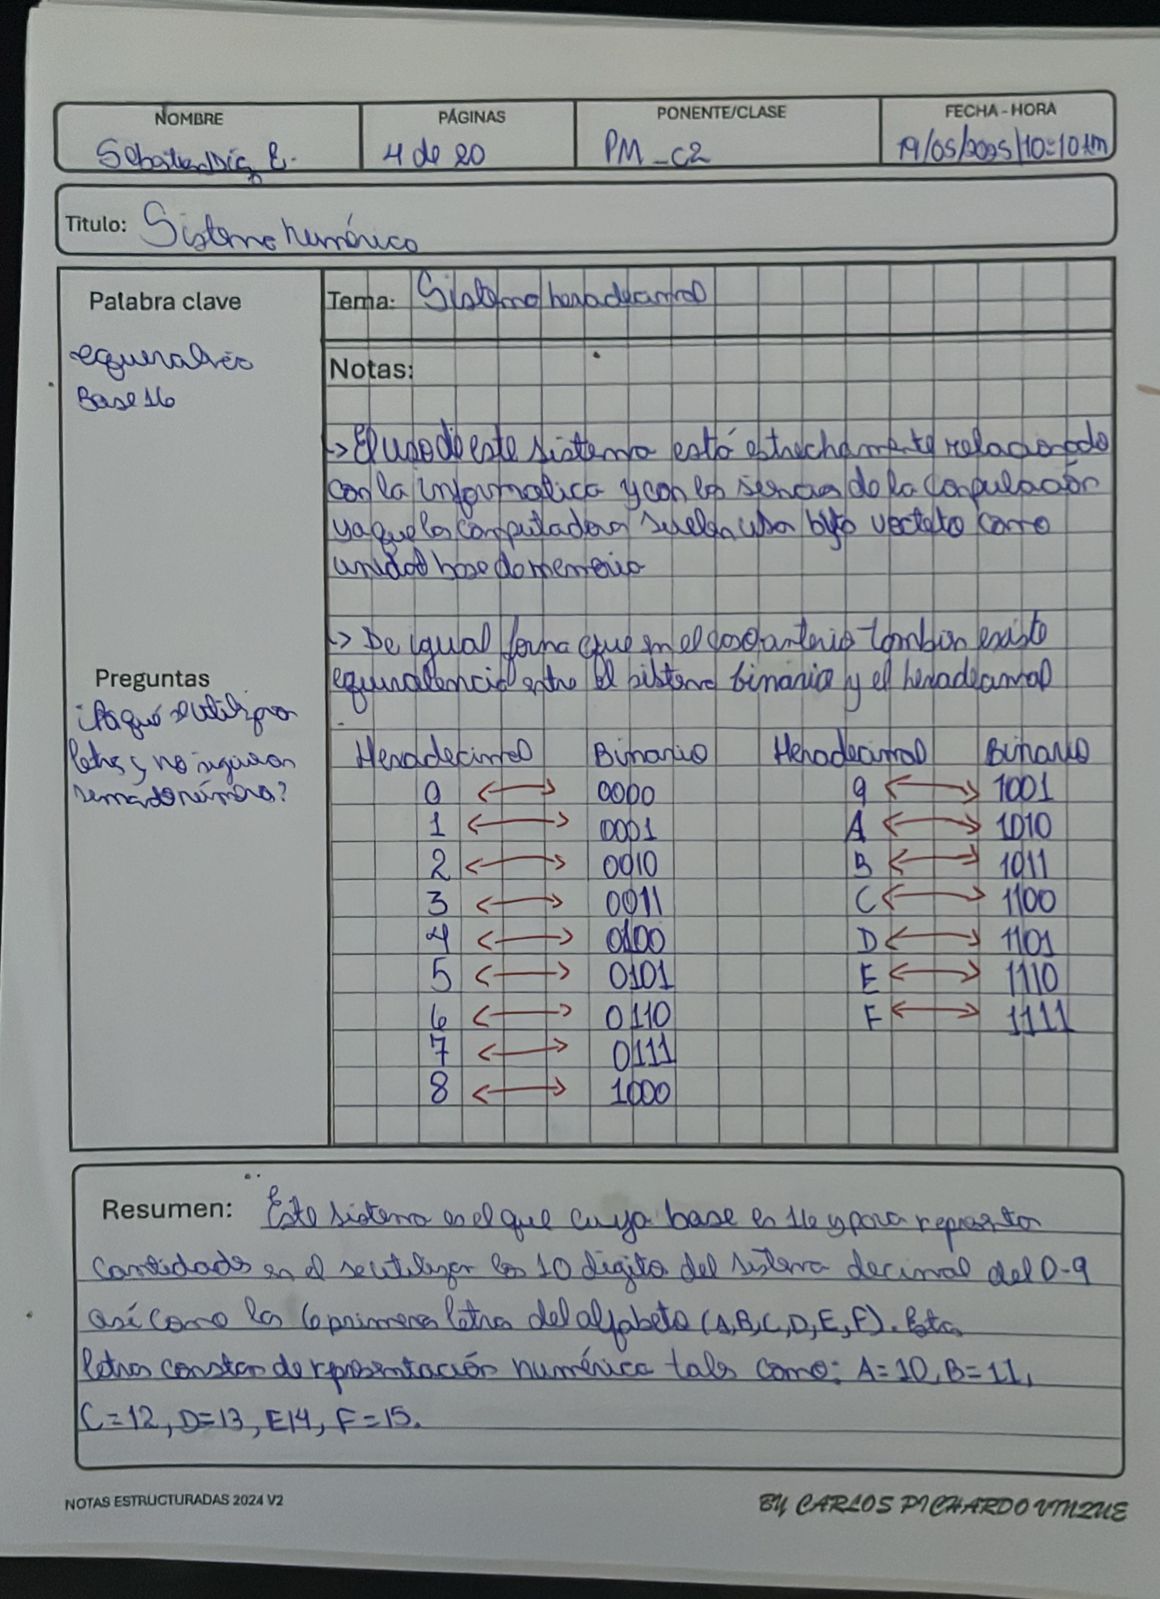 NOMBRE PÁGINAS PONENTE/CLASE FECHA - HORA
E. 4 de 20 PM_C2 19/05/2025/10:10 am
Titulo: Sistema numérico
Palabra clave
Tema: Sistema hexadecimal
Base 16
Notas:
-> El uso de este sistema está estrechamente relacionado
con la informatica y con las de la Computación
ya que las computadoras suelen usar byte como
unidad base de memoria
-> De igual forma que en el caso anterio tambien existe
equivalencia entre el sistema binario y el hexadecimal
Preguntas
utilizan
letras y no siguieron
números?
Hexadecimal Binario Hexadecimal Binario
0 <-> 0000 9 <-> 1001
1 <-> 0001 A <-> 1010
2 <-> 0010 B <-> 1011
3 <-> 0011 C <-> 1100
4 <-> 0100 D <-> 1101
5 <-> 0101 E <-> 1110
6 <-> 0110 F <-> 1111
7 <-> 0111
8 <-> 1000
Resumen: Este sistema es el que cuya base es 16 y para
cantidades en el se utilizan los 10 digito del sistema decimal del 0-9
así como las 6 primeras letras del alfabeto (A,B,C,D,E,F). Estas
letras constan de numérica tals como: A=10, B=11,
C=12, D=13, E14, F=15.
NOTAS ESTRUCTURADAS 2024 V2
BY CARLOS PICHARDO VIUZUE